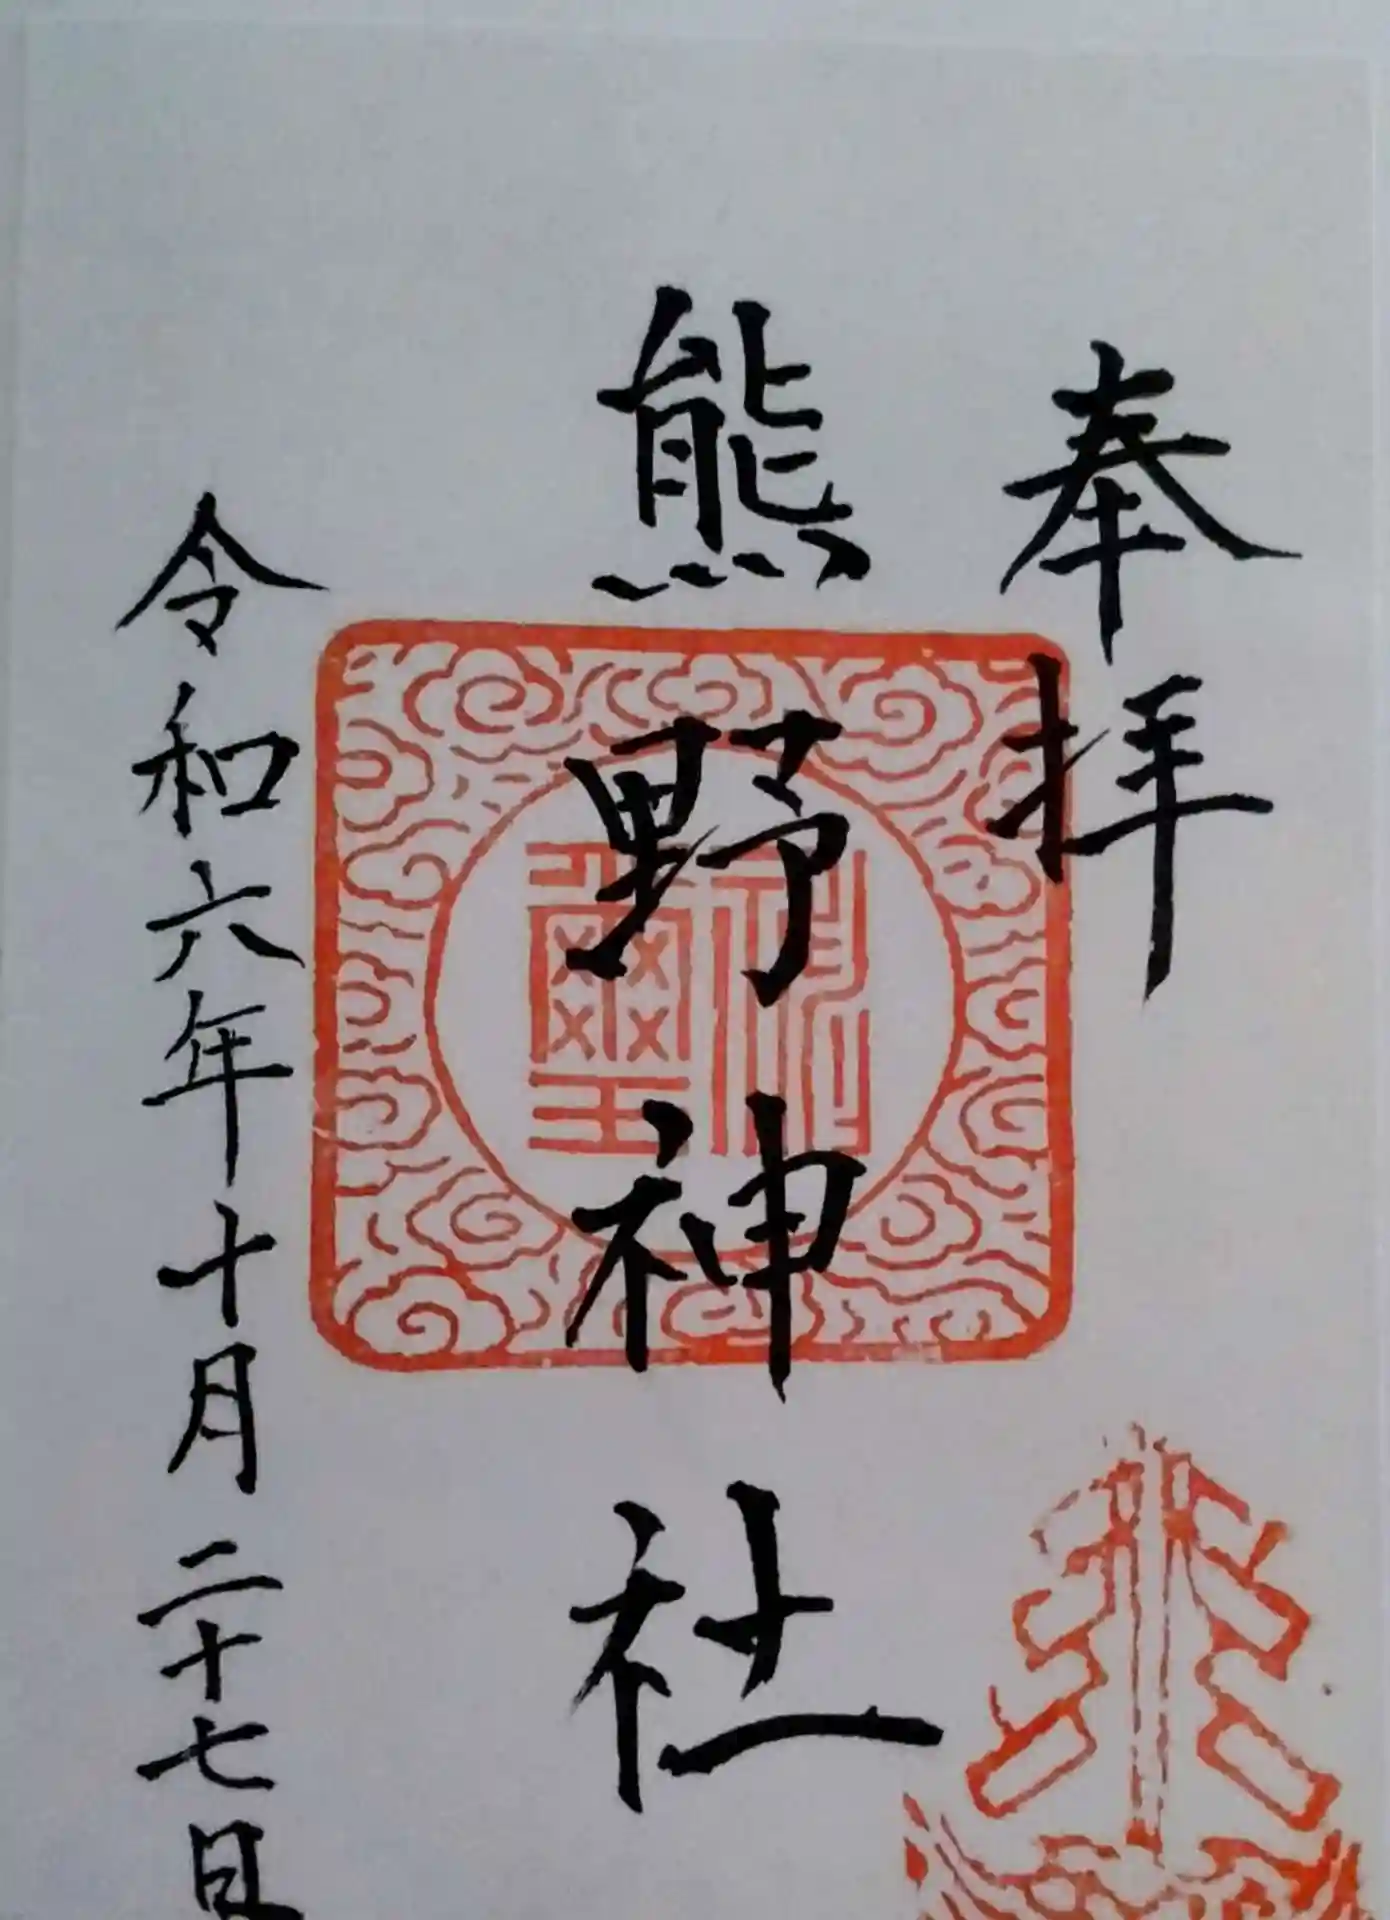 奉拝
熊野神社
神璽
令和六年十月二十七日